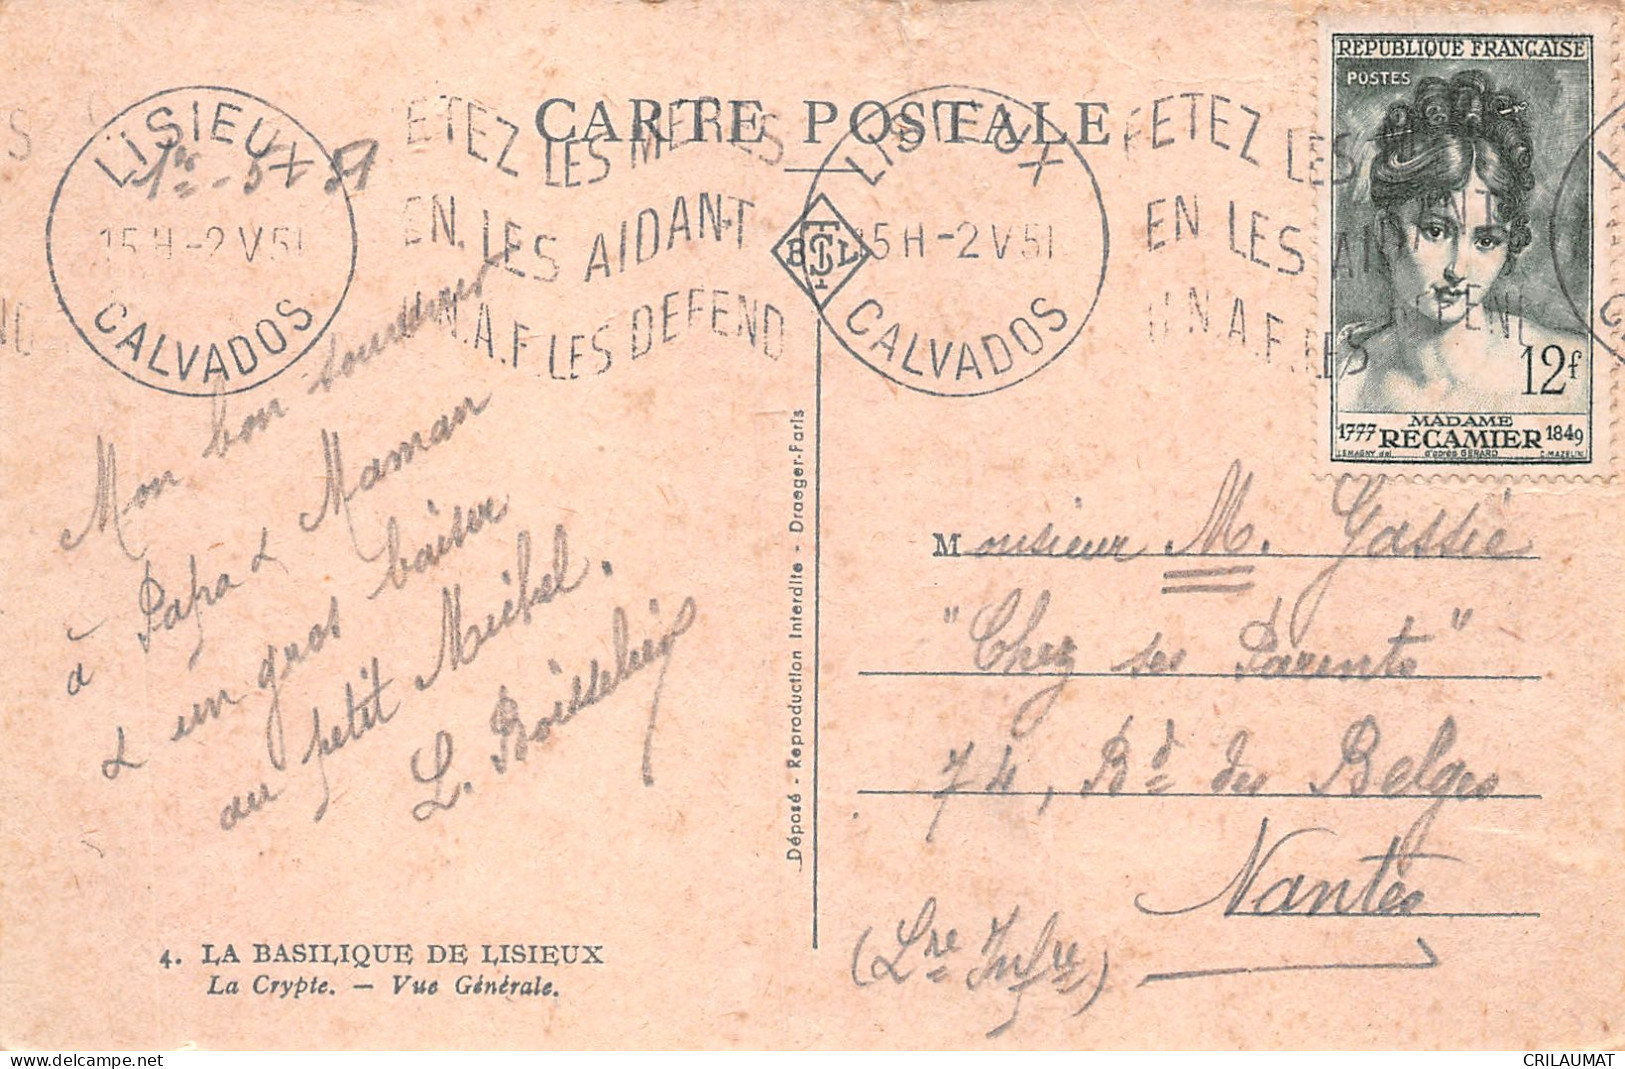 CARTE POSTALE
LISIEUX
15H-2 V 51
CALVADOS
FETEZ LES MERES
EN LES AIDANT
U.N.A.F LES DEFEND
1er-5-51
LISIEUX
15H-2 V 51
CALVADOS
FETEZ LES M
EN LES AIDANT
U.N.A.F LES DEFEND
REPUBLIQUE FRANÇAISE
POSTES
12f
MADAME
1777 RECAMIER 1849
d'après GERARD
C. MAZELIN
BSL
Mon bon souvenir
à Papa & Maman
& un gros baiser
au petit Michel.
L.
Monsieur M. Gassie
"Chez ses Parents"
74, Bd des Belges
Nantes
(Lre Infre)
Déposé - Reproduction Interdite - Draeger-Paris
4. LA BASILIQUE DE LISIEUX
La Crypte. — Vue Générale.
CRILAUMAT